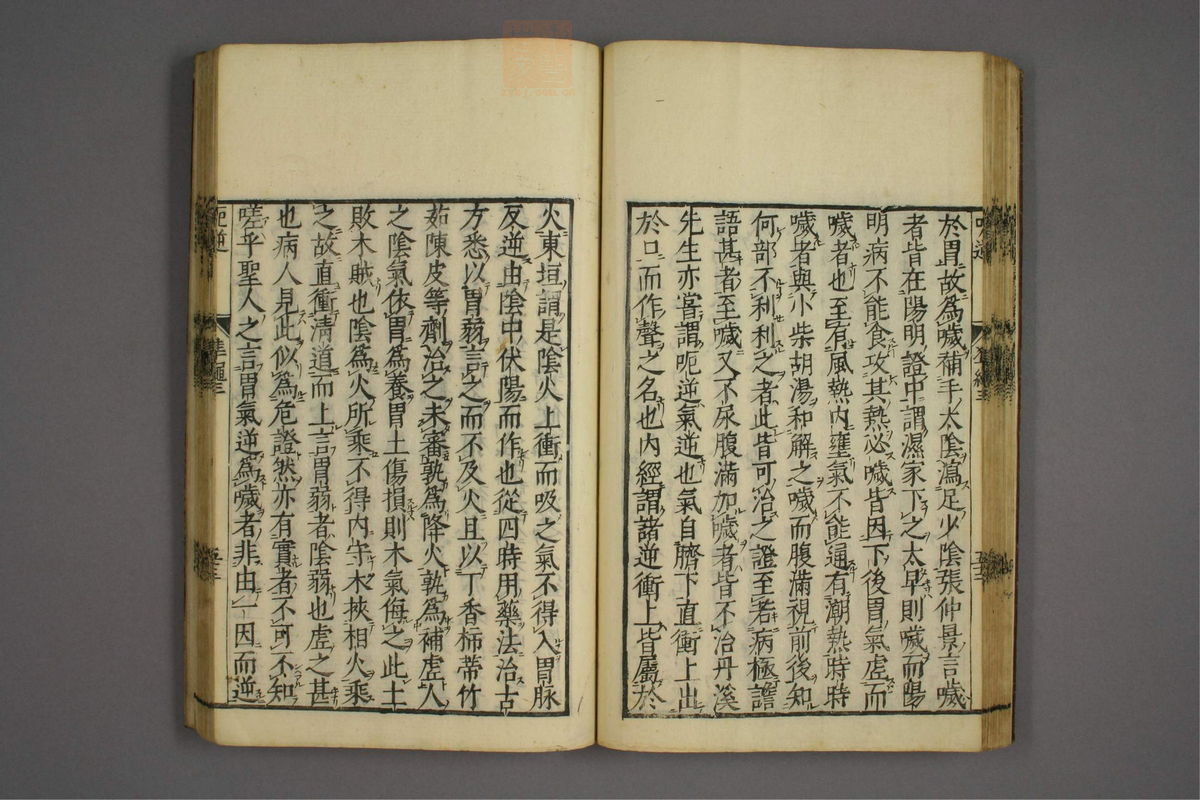 於胃故為噦補手太陰瀉足少陰張仲景言噦
者皆在陽明證中謂濕家下之太早則噦而陽
明病不能食攻其熱必噦皆因下後胃氣虛而
噦者也至有風熱內壅氣不能通有潮熱時時
噦者與小柴胡湯和解之噦而腹滿視前後知
何部不利利之者此皆可治之證至若病極譫
語甚者至噦又不尿腹滿加噦者皆不治丹溪
先生亦嘗謂呃逆氣逆也氣自臍下直衝上出
於口而作聲之名也內經謂諸逆衝上皆屬於
火東垣謂是陰火上衝而吸之氣不得入胃脉
反逆由陰中伏陽而作也從四時用藥法治古
方悉以胃弱言之而不及火且以丁香柿蒂竹
茹陳皮等劑治之未審孰為降火孰為補虛人
之陰氣依胃為養胃土傷損則木氣侮之此土
敗木賊也陰為火所乘不得內守木挾相火乘
之故直衝清道而上言胃弱者陰弱也虛之甚
也病人見此似為危證然亦有實者不可不知
嗟乎聖人之言胃氣逆為噦者非由一因而逆
呃逆